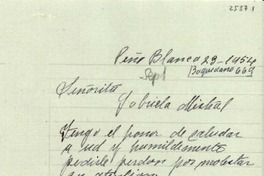 2557 1
Peña Blanca 29-1954
Sept
Boquedano 669
Señorita
Gabriela Mistral
Tengo el honor de saludar
a ud y humildemente
pedirle perdon por molestar
su atencion